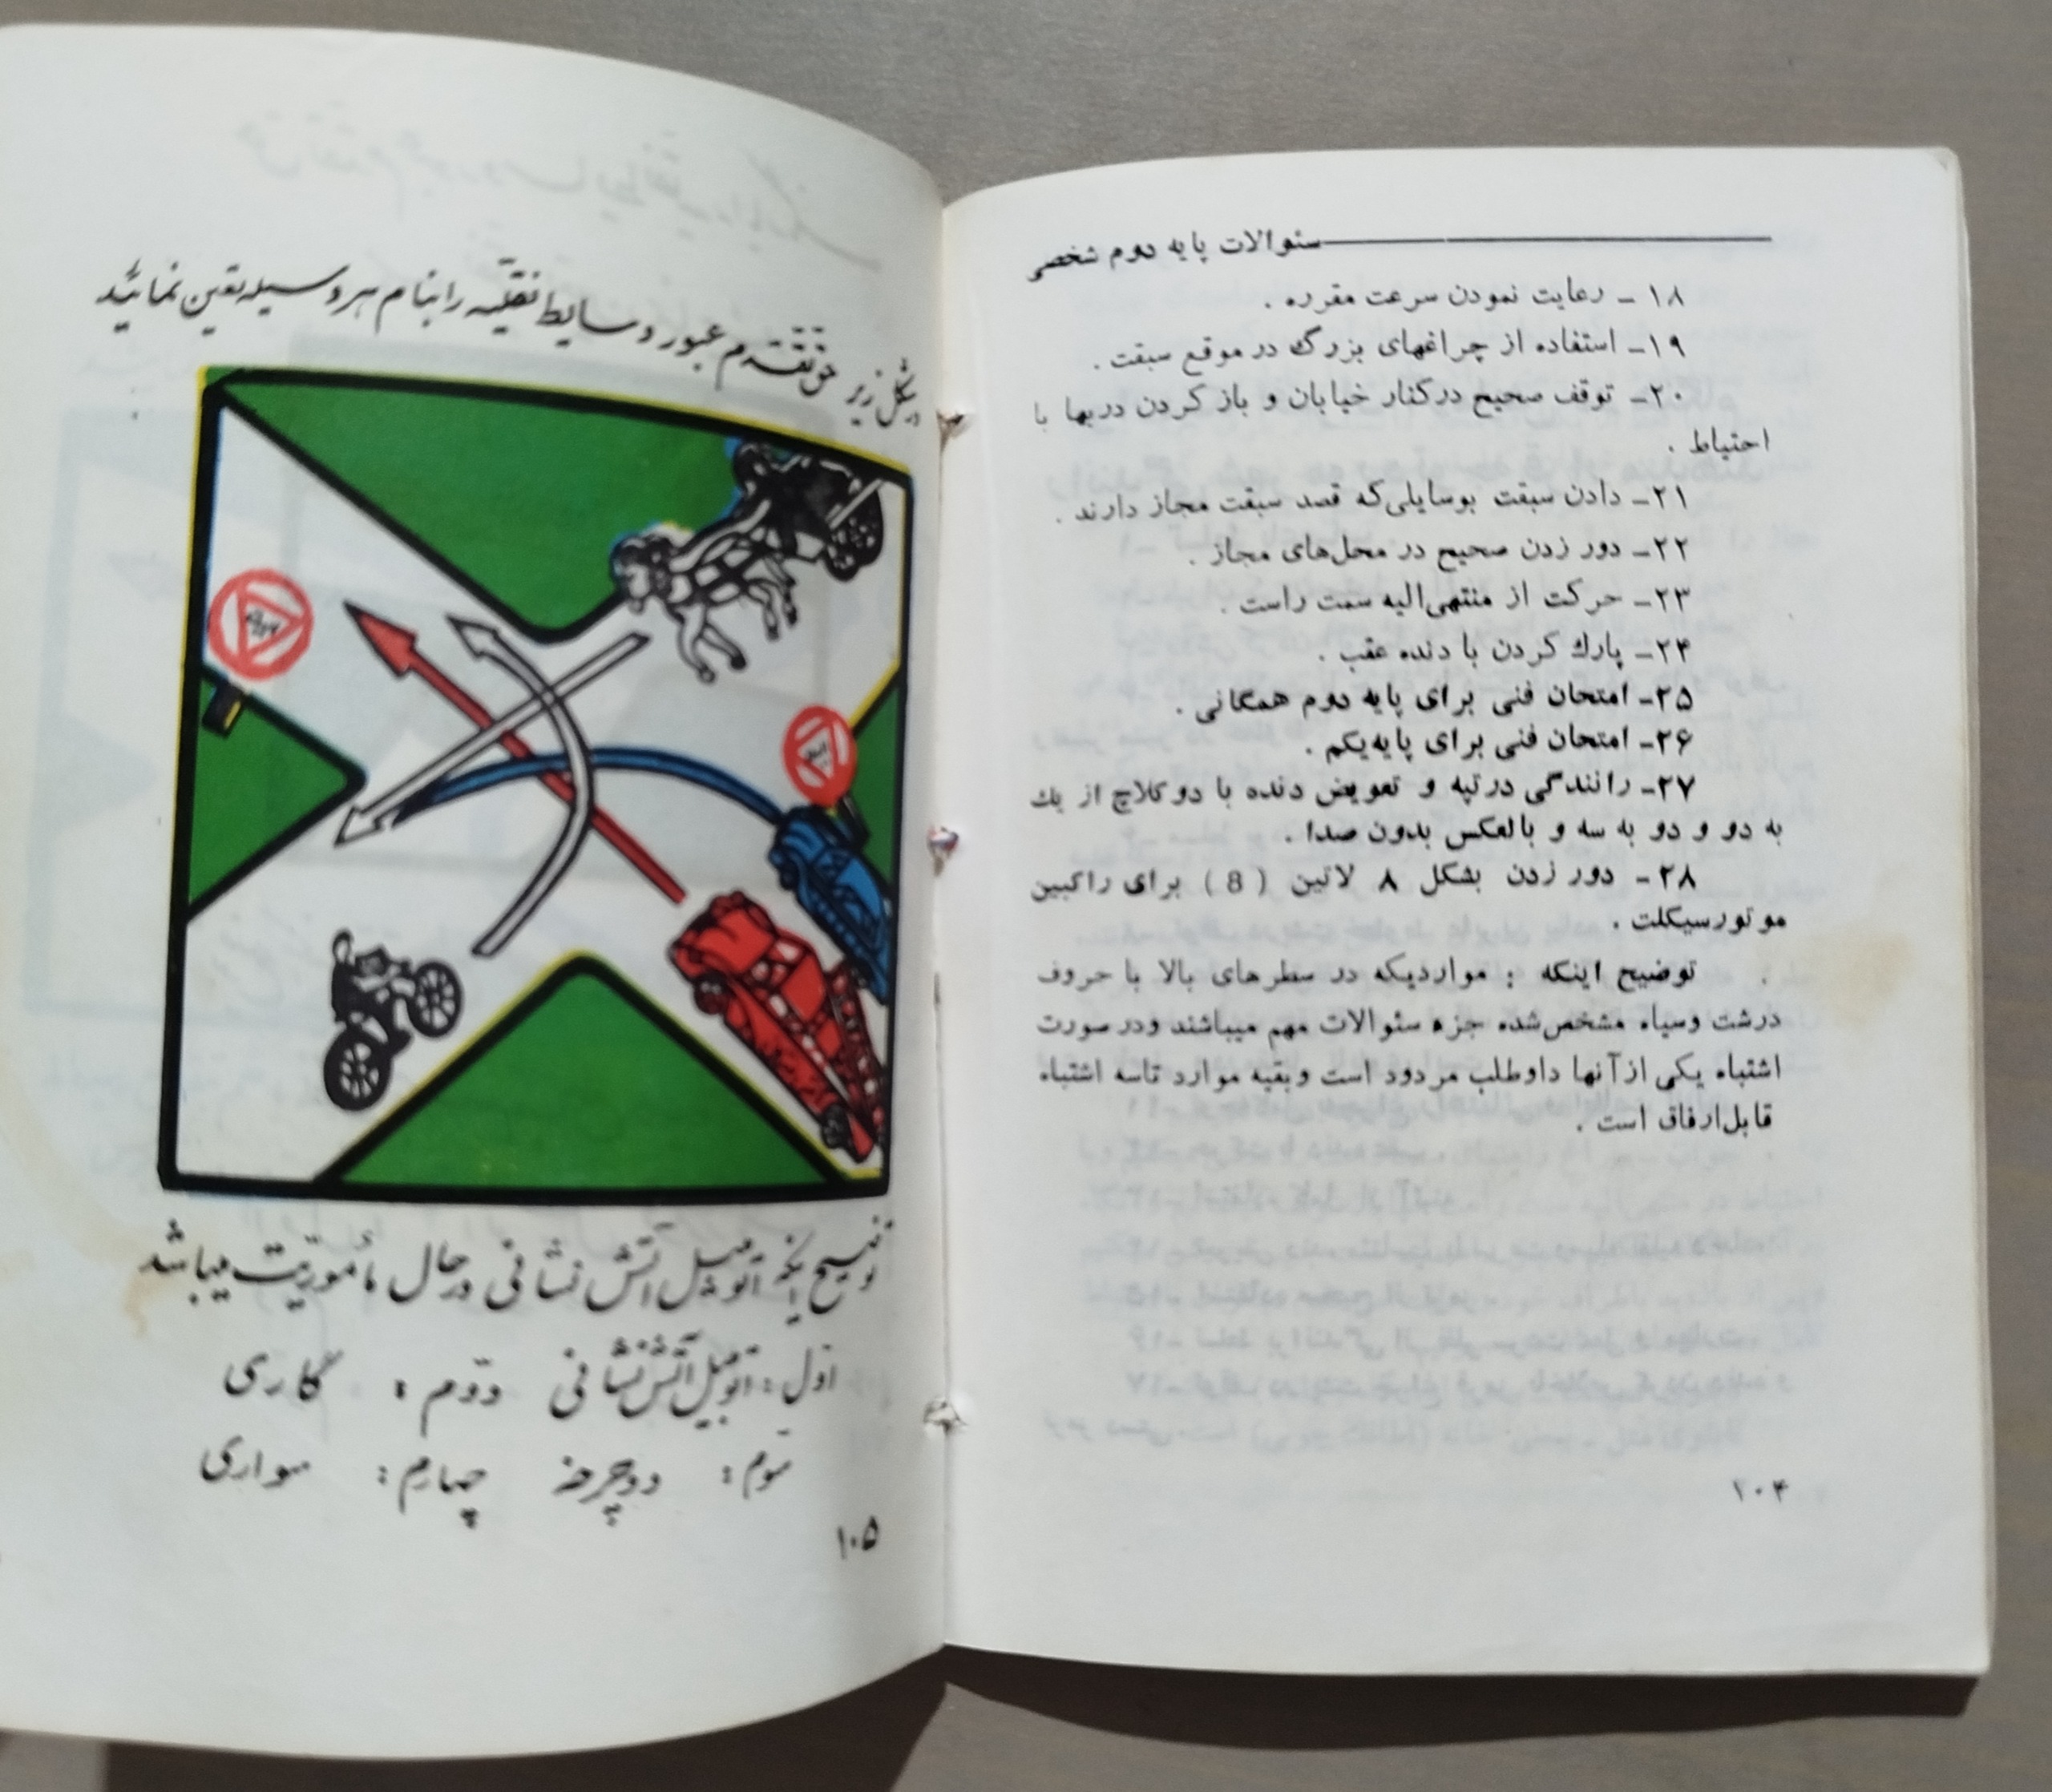 سئوالات پایه دوم شخصی
۱۸ـ رعایت نمودن سرعت مقرره .
۱۹ـ استفاده از چراغهای بزرگ در موقع سبقت .
۲۰ـ توقف صحیح درکنار خیابان و باز کردن دربها با
احتیاط .
۲۱ـ دادن سبقت بوسایلی‌که قصد سبقت مجاز دارند .
۲۲ـ دور زدن صحیح در محل‌های مجاز .
۲۳ـ حرکت از منتهی‌الیه سمت راست .
۲۴ـ پارك کردن با دنده عقب .
۲۵ـ امتحان فنی برای پایه دوم همگانی .
۲۶ـ امتحان فنی برای پایه‌یکم .
۲۷ـ رانندگی درتپه و تعویض دنده با دوکلاچ از یك
به دو و دو به سه و بالعکس بدون صدا .
۲۸ـ دور زدن بشکل ۸ لاتین ( 8 ) برای راکبین
موتورسیکلت .
توضیح اینکه : مواردیکه در سطرهای بالا با حروف
درشت وسیاه مشخص‌شده جزء سئوالات مهم میباشند ودر صورت
اشتباه یکی ازآنها داوطلب مردود است وبقیه موارد تاسه اشتباه
قابل‌ارفاق است .
۱۰۴
درشکل زیر حق تقدم عبور وسایط نقلیه را بنام هر وسیله تعین نمائید
توضیح اینکه اتومبیل آتش نشانی درحال مأموریت میباشد
اول : اتومبیل آتش نشانی دوم : گاری
سوم : دوچرخه چهارم : سواری
۱۰۵